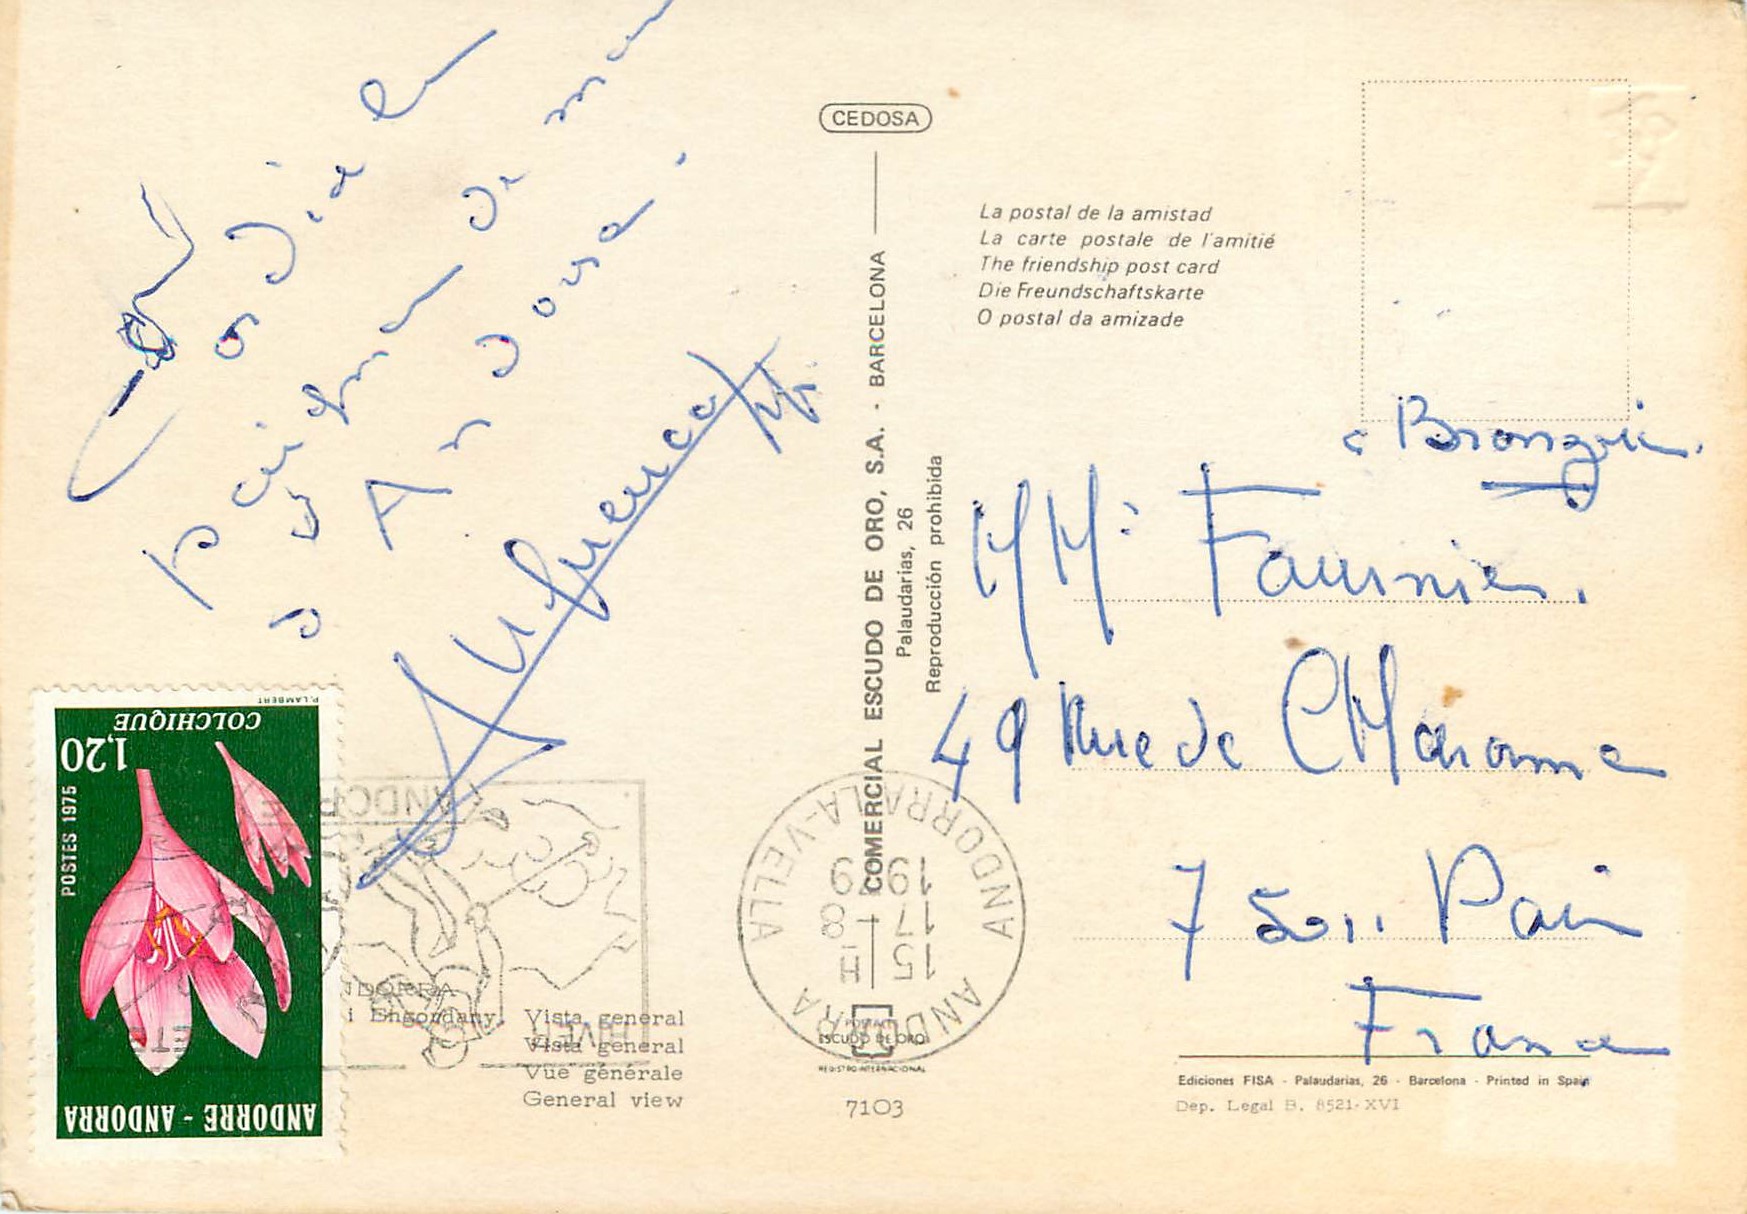 Cordiale
poignée de main
d'Andorra.
CEDOSA
La postal de la amistad
La carte postale de l'amitié
The friendship post card
Die Freundschaftskarte
O postal da amizade
COMERCIAL ESCUDO DE ORO, S.A. - BARCELONA
Palaudarias, 26
Reproducción prohibida
MM. Fournier.
49 Rue de
75011 Paris
France
P. LAMBERT
COLCHIQUE
1,20
POSTES 1975
ANDORRE - ANDORRA
ANDORRA LA-VELLA
15 H
17-8
1979
ANDORRA
ANDORRA
i Engordany. Vista general
Vista general
Vue générale
General view
HIVER
ESCUDO DE ORO
REGISTRO INTERNACIONAL
7103
Ediciones FISA - Palaudarias, 26 - Barcelona - Printed in Spain
Dep. Legal B. 8521-XVI